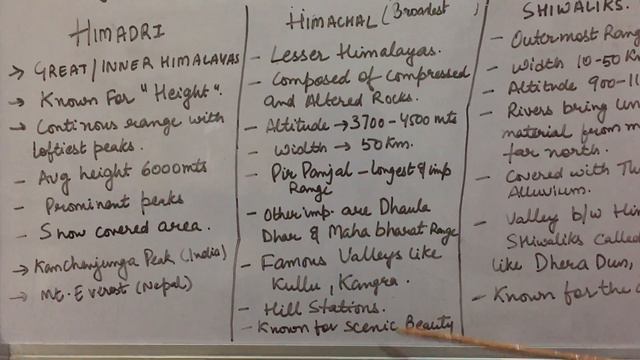 HIMADRI
→ GREAT/INNER HIMALAYAS
→ Known For "Height".
→ Continous range with
loftiest peaks.
- Avg height 6000mts
- Prominent peaks
- Snow covered area.
→ Kanchenjunga Peak (India)
→ Mt. Everest (Nepal)
HIMACHAL (Broadest)
- Lesser Himalayas.
- Composed of compressed
and Altered Rocks.
- Altitude → 3700 - 4500 mts
- Width → 50 Km.
- Pir Panjal - longest & imp
Range
- Other imp. are Dhaula
Dhar & Mahabharat Range
- Famous Valleys like
Kullu, Kangra.
- Hill Stations.
- Known for Scenic Beauty
SHIWALIKS.
- Outermost Rang
- Width 10-50 K
- Altitude 900-11
- Rivers bring un
material from m
far north.
- Covered with Th
Alluvium.
- Valley b/w Him
Shiwaliks called
like Dhera Dun,
- Known for the